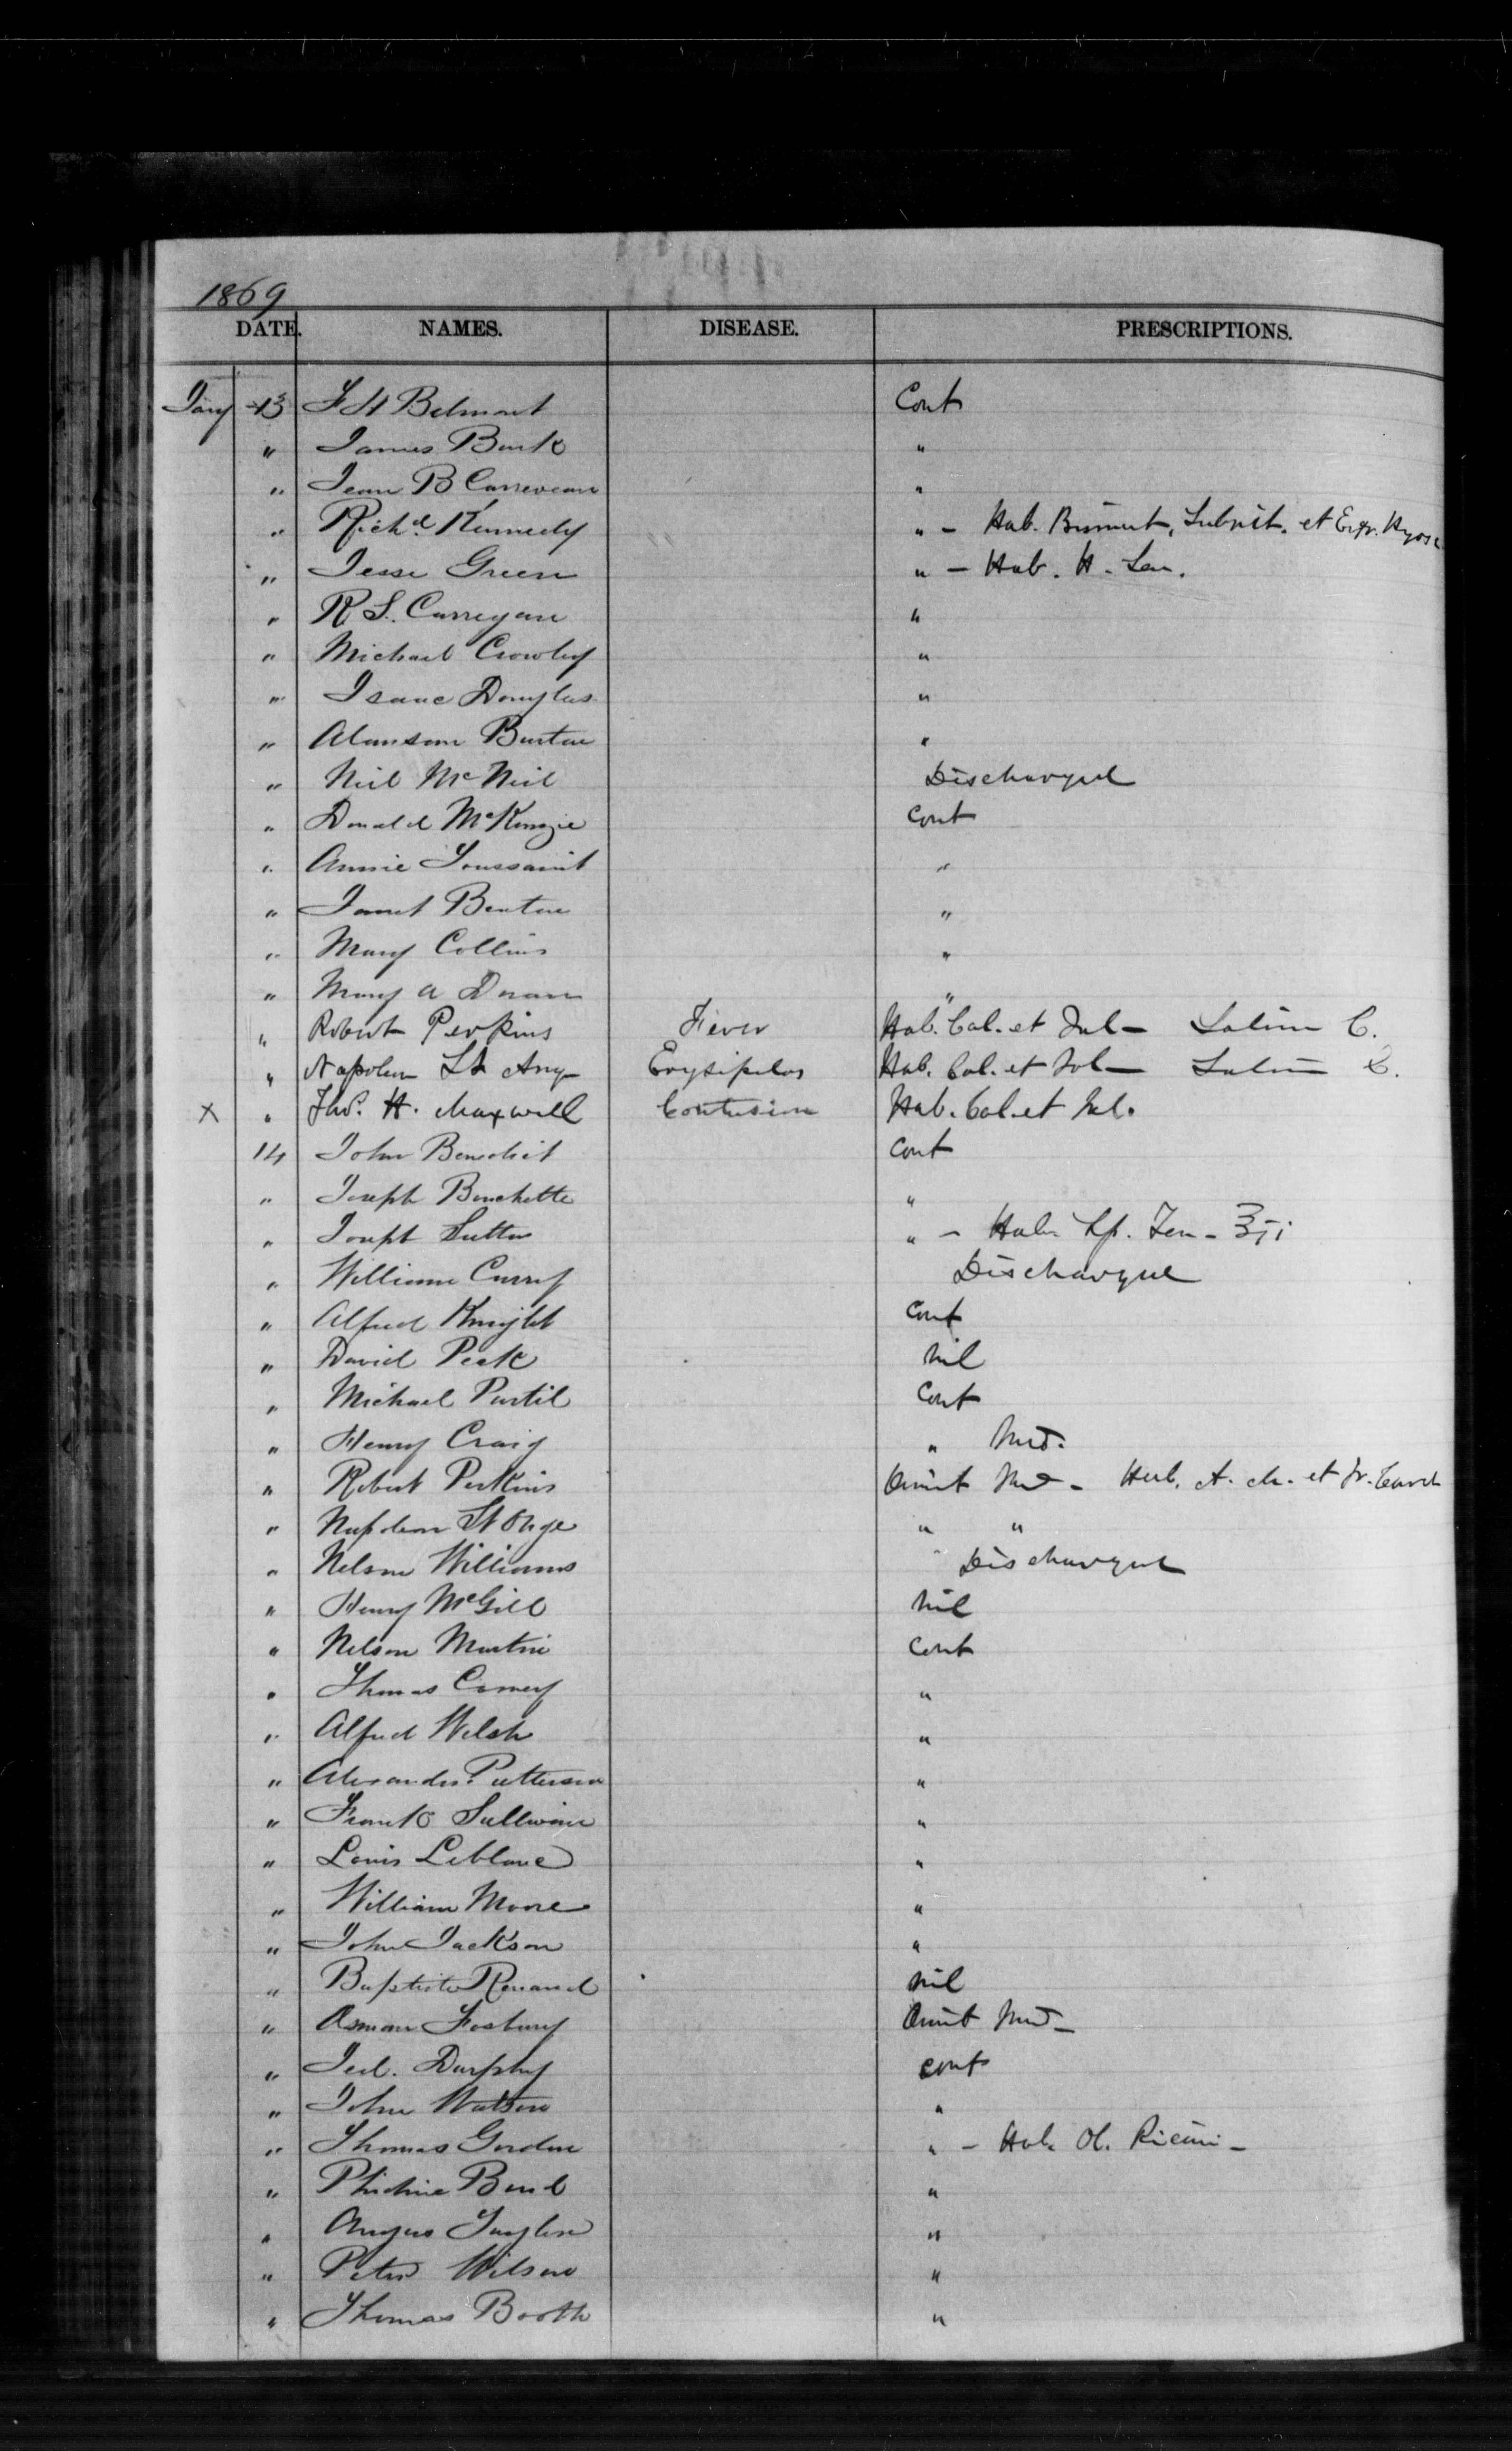 1869
DATE. NAMES. DISEASE. PRESCRIPTIONS.
Jany 13 F H Belmont Cont
" James Burk "
" Jean B Carreveau "
" Rich.d Kennedy " - Hab. Bismut. Subnit. et Extr. Hyosc
" Jesse Green " - Hab. H. Sen.
" R S. Carregan "
" Michael Crowley "
" Isaac Douglas "
" Alanson Burton "
" Neil McNeil Discharged
" Donald McKenzie Cont
" Annie Toussaint "
" Janet Benton "
" Mary Collins "
" Mary A Doran "
" Robert Perkins Fever Hab. Cal. et Jal - Saline C.
" Napoleon St Ang- Erysipelas Hab. Cal. et Jal - Saline C.
X " Thos. H. Maxwell Contusion Hab. Cal. et Jal.
14 John Benedict Cont
" Joseph Bouchette "
" Joseph Sutton " - Hab. Sp. Ten - ℥ji
" William Curry Discharged
" Alfred Knight Cont
" David Peek Nil
" Michael Purtil Cont
" Henry Craig " Med.
" Robert Perkins Omit Med - Hab. A. M. et Tr. Card
" Napoleon St Onge " "
" Nelson Williams Discharged
" Henry McGill Nil
" Nelson Martin Cont
" Thomas Carney "
" Alfred Welsh "
" Alexander Patterson "
" Frank Sullivan "
" Louis Leblanc "
" William Moore "
" John Jackson "
" Baptiste Renaud Nil
" Osman Fosbury Omit Med -
" Jed. Durphy Cont
" John Watson "
" Thomas Gordon " - Hab. Ol. Ricini -
" Phidime Beril "
" Angus Taylor "
" Peter Wilson "
" Thomas Booth "